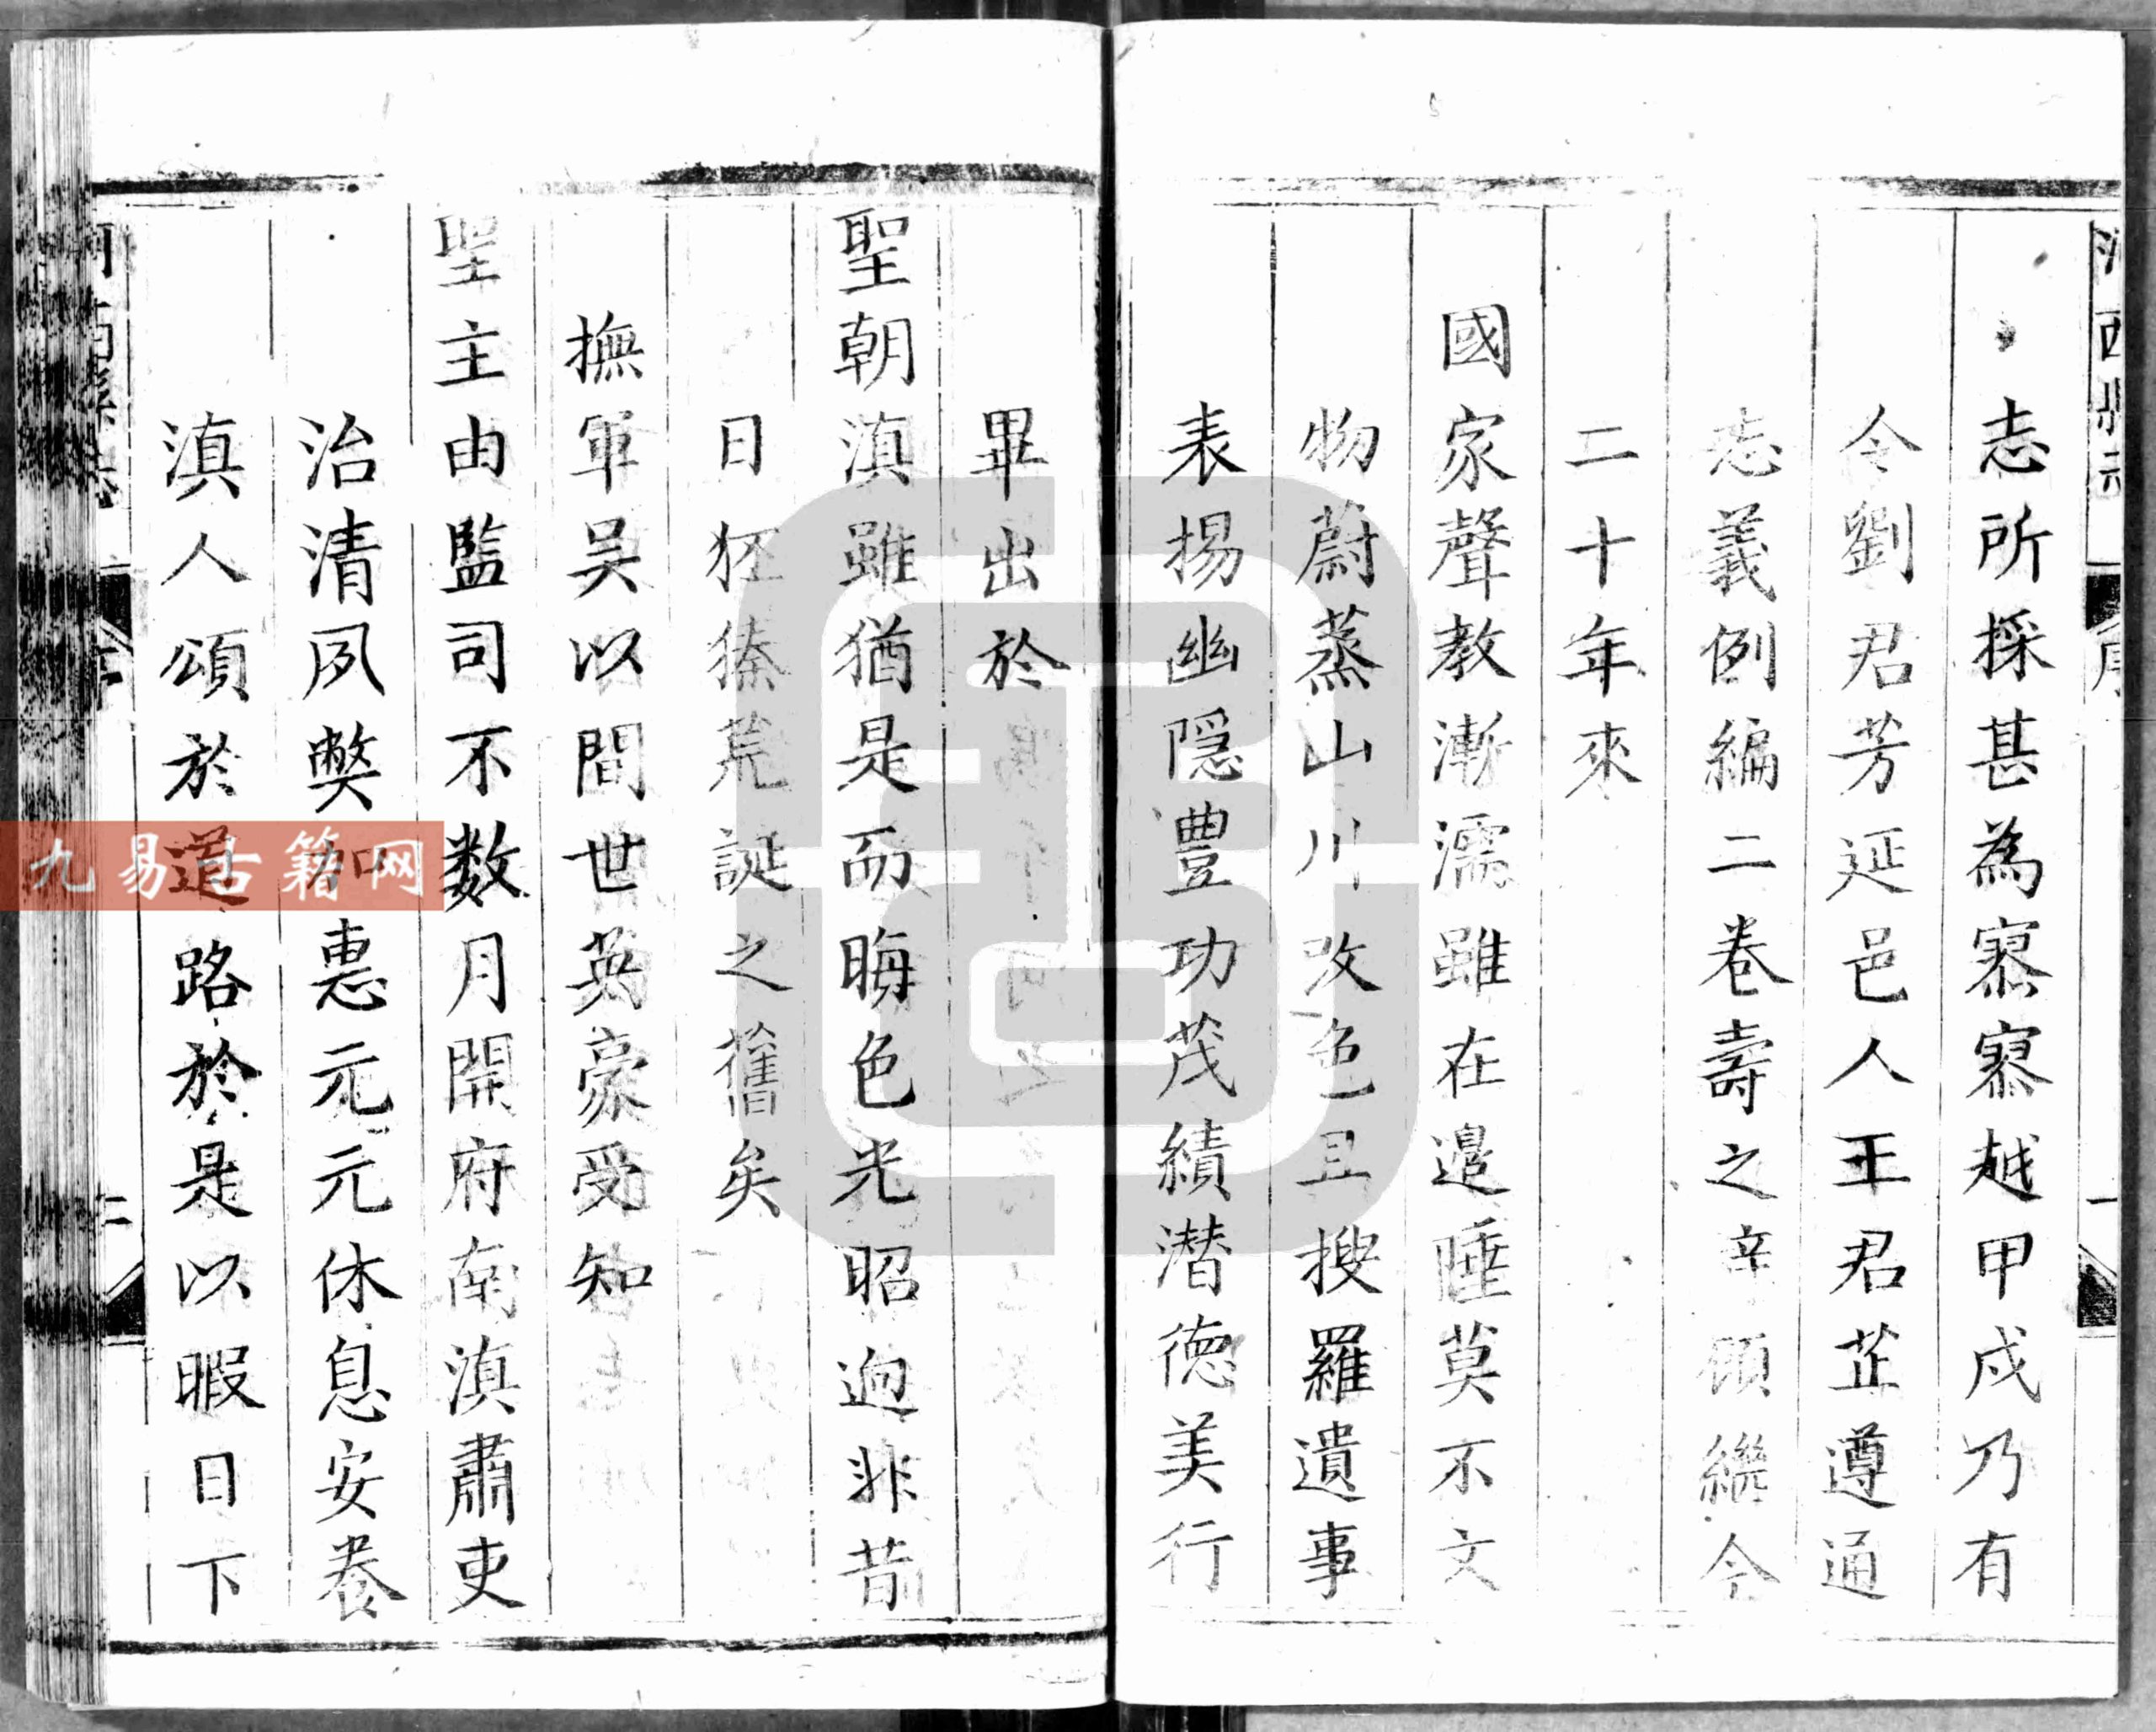 志所採甚為寥寥越甲戍乃有
令劉君芳延邑人王君芷遵通
志義例編二卷壽之辛頋繼今
二十年來
國家聲教漸濡雖在邉陲莫不文
物蔚蒸山川改色且搜羅遺事
表揚幽隠豊功茂績潜德美行
畢出於
聖朝滇雖猶是而晦色光昭迥非昔
日狉獉荒誕之舊矣
撫軍吴以間世英豪受知
聖主由監司不数月開府南滇肅吏
治清夙獘加惠元元休息安養
滇人頌於道路於是以暇日下
九易古籍网